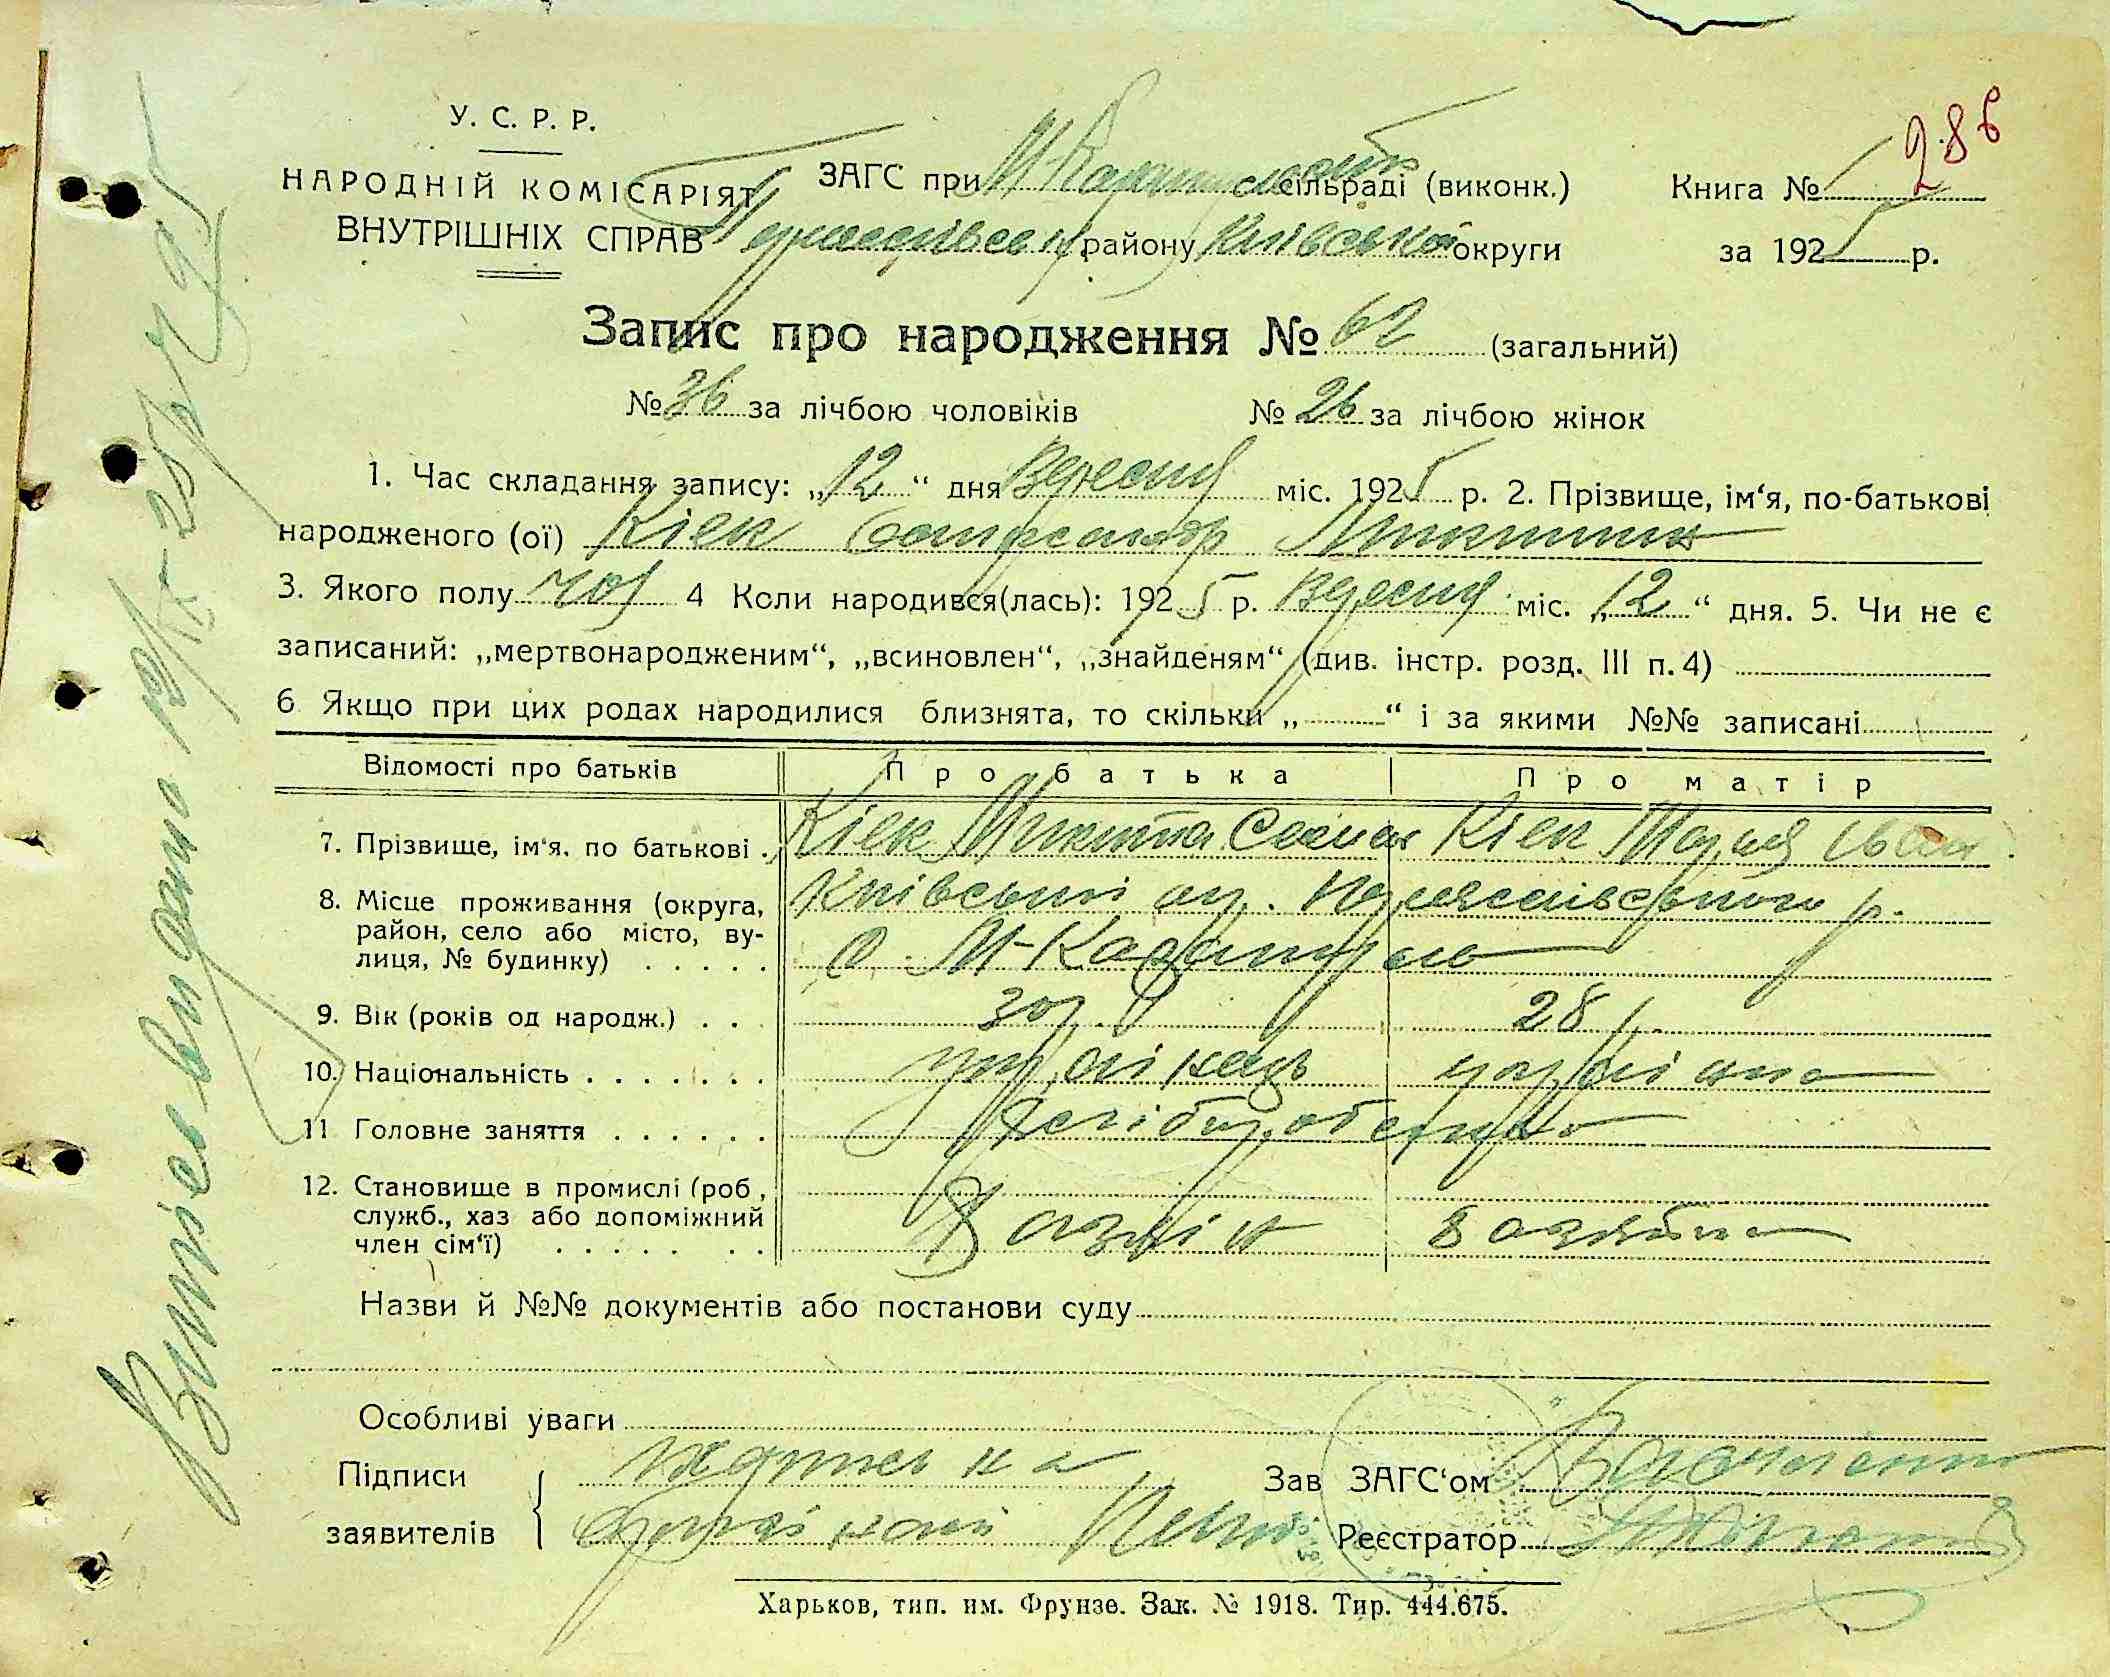 286
У. С. Р. Р.
НАРОДНІЙ КОМІСАРІЯТ
ВНУТРІШНІХ СПРАВ
ЗАГС при М-Каратульск сільраді (виконк.)
району Київської округи
Книга №
за 1925 р.
Запис про народження № 62 (загальний)
№ 36 за лічбою чоловіків № 26 за лічбою жінок
1. Час складання запису: „12“ дня Вересня міс. 1925 р. 2. Прізвище, ім‘я, по-батькові
народженого (ої) Кіек
3. Якого полу чол 4 Коли народився(лась): 1925 р. Вересня міс. „12“ дня. 5. Чи не є
записаний: „мертвонародженим“, „всиновлен“, „знайденям“ (див. інстр. розд. III п. 4)
6 Якщо при цих родах народилися близнята, то скільки „ “ і за якими №№ записані
Відомості про батьків Про батька Про матір
7. Прізвище, ім‘я. по батькові Кіек Микита Кіек Мария Іван
8. Місце проживання (округа, район, село або місто, ву-
лиця, № будинку)
Київської ок. р.
с. М-Каратуль
9. Вік (років од народж.) 30 р. 28 р.
10. Національність українець українка
11 Головне заняття
12. Становище в промислі (роб, служб., хаз або допоміжний
член сім‘ї) Хазяін Хазяйка
Назви й №№ документів або постанови суду
Особливі уваги
Підписи
заявителів
Зав ЗАГС‘ом
Реєстратор
Харьков, тип. им. Фрунзе. Зак. № 1918. Тир. 444.675.